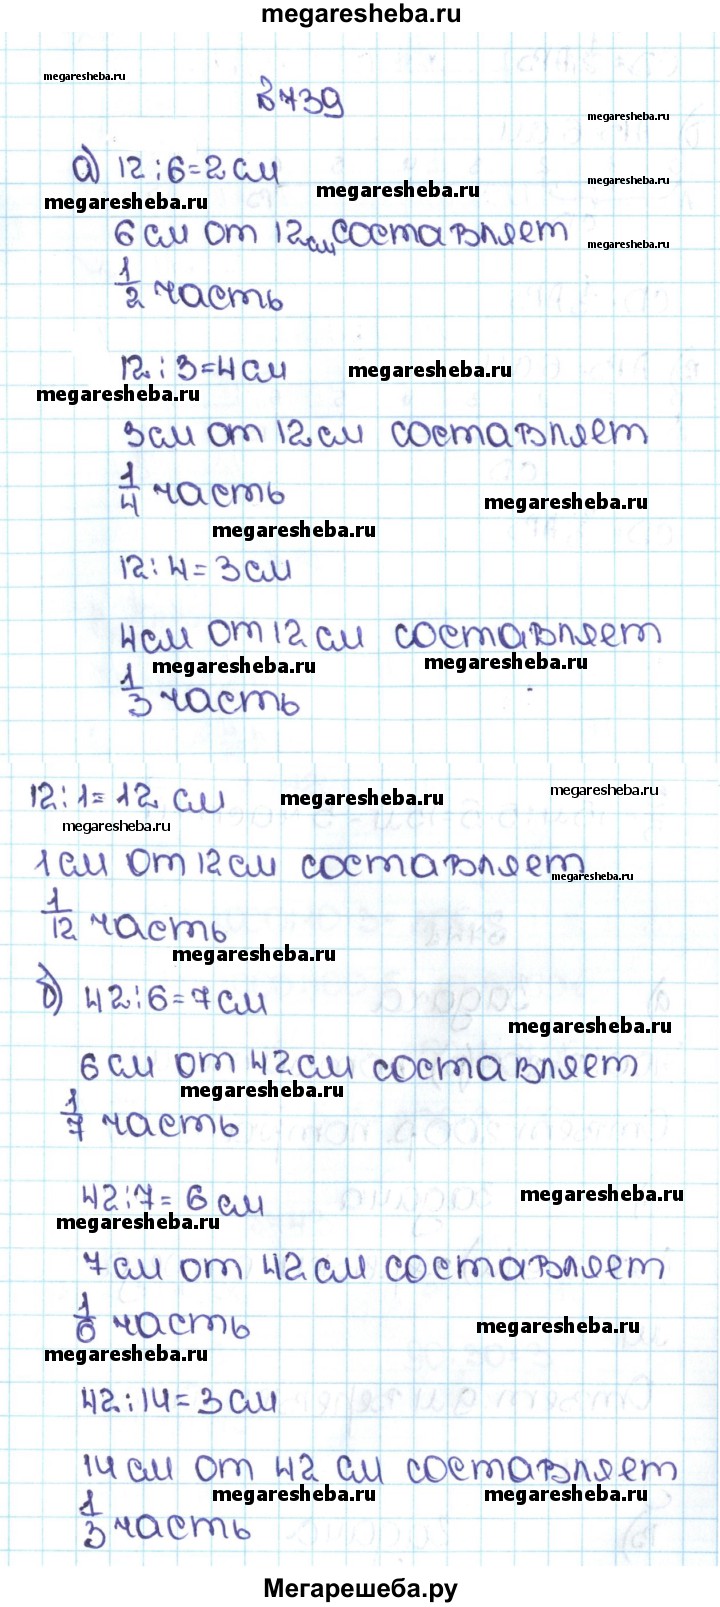 megaresheba.ru
megaresheba.ru
В 739
megaresheba.ru
а) 12 : 6 = 2 см
megaresheba.ru
megaresheba.ru
megaresheba.ru
6 см от 12 см составляет
megaresheba.ru
1/2 часть
12 : 3 = 4 см
megaresheba.ru
megaresheba.ru
3 см от 12 см составляет
1/4 часть
megaresheba.ru
megaresheba.ru
12 : 4 = 3 см
4 см от 12 см составляет
megaresheba.ru
megaresheba.ru
1/3 часть
12 : 1 = 12 см
megaresheba.ru
megaresheba.ru
megaresheba.ru
1 см от 12 см составляет
megaresheba.ru
1/12 часть
megaresheba.ru
б) 42 : 6 = 7 см
megaresheba.ru
6 см от 42 см составляет
megaresheba.ru
1/7 часть
42 : 7 = 6 см
megaresheba.ru
megaresheba.ru
7 см от 42 см составляет
1/6 часть
megaresheba.ru
megaresheba.ru
42 : 14 = 3 см
14 см от 42 см составляет
megaresheba.ru
megaresheba.ru
1/3 часть
Мегарешеба.ру